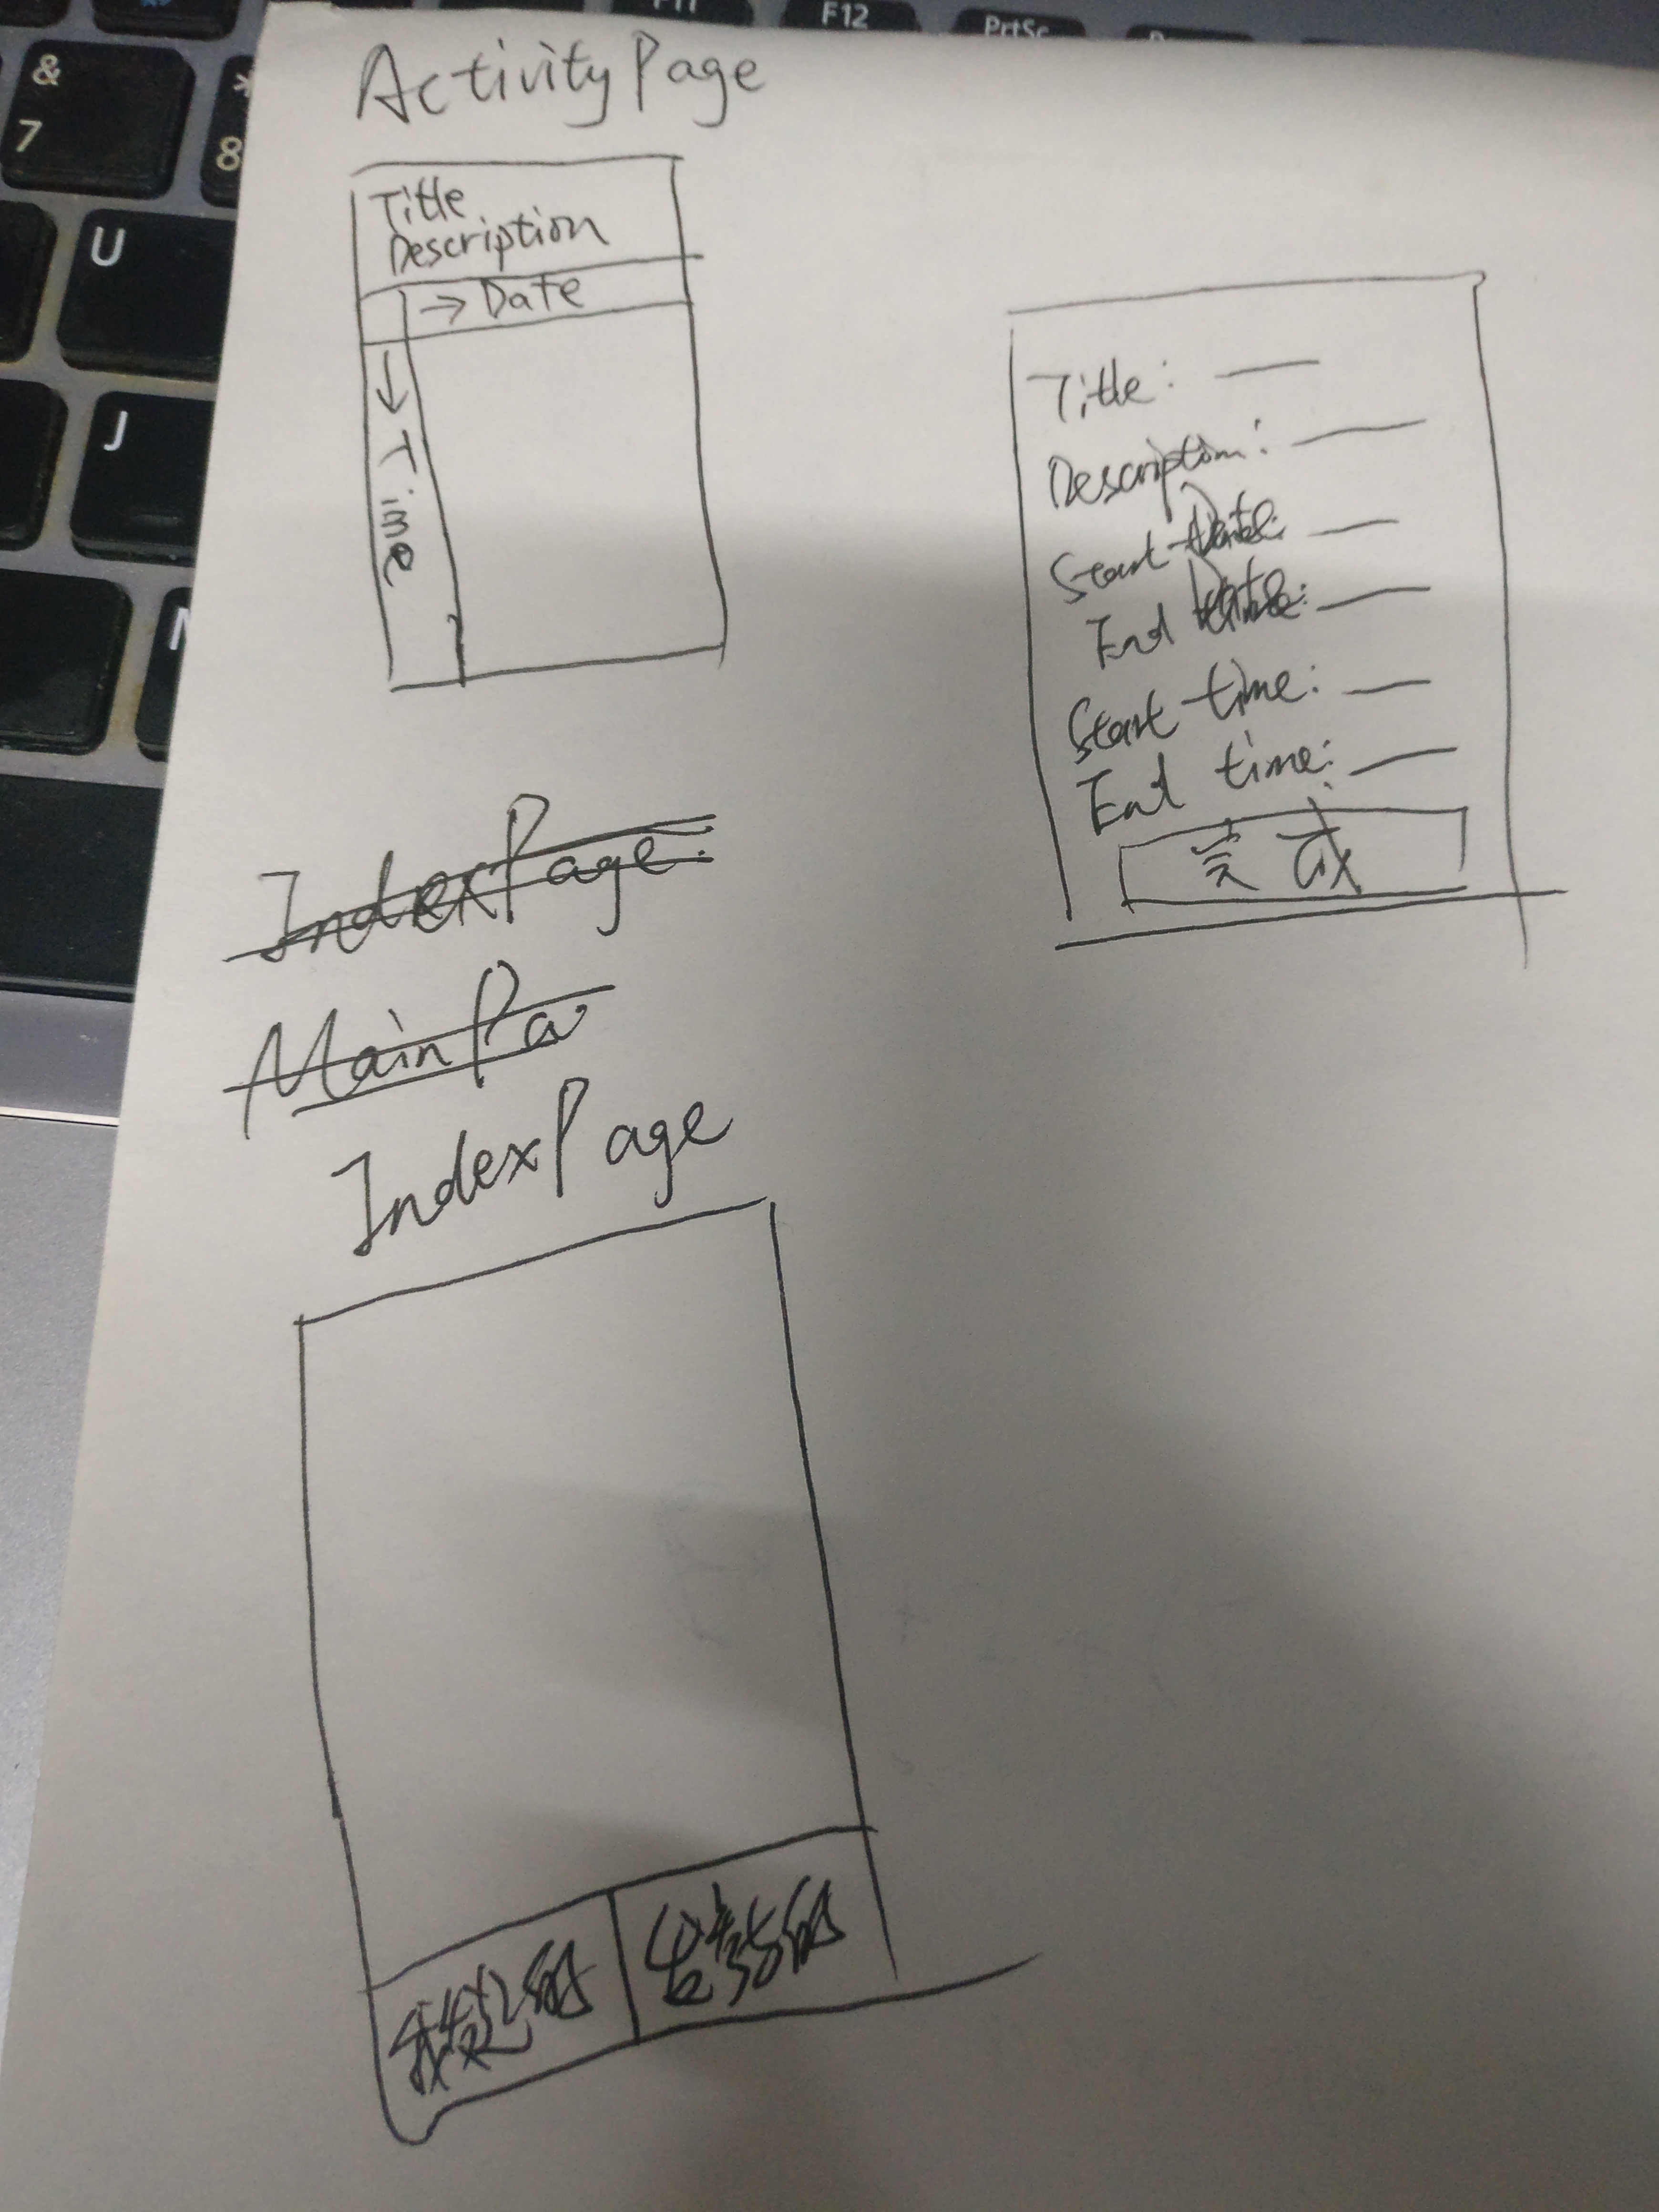 F11
F12
PrtSc
&
7
*
8
U
J
N
ActivityPage
Title
Description
→ Date
↓ Time
Title:
Description:
Start Date:
End Date:
Start time:
End time:
完成
IndexPage
MainPa
IndexPage
我发起的
我参与的